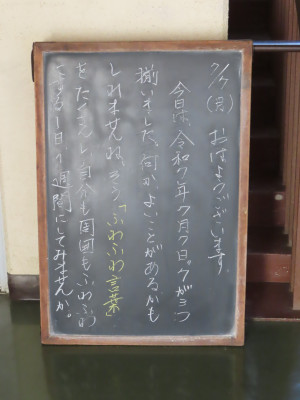 7/7(月) おはようございます。
今日は、令和7年7月7日。7が3つ
揃いました。何か、よいことがあるかも
しれませんね。そう「ふわふわ言葉」
をたくさんし、自分も周囲もふわふわ
する1日、1週間にしてみませんか。